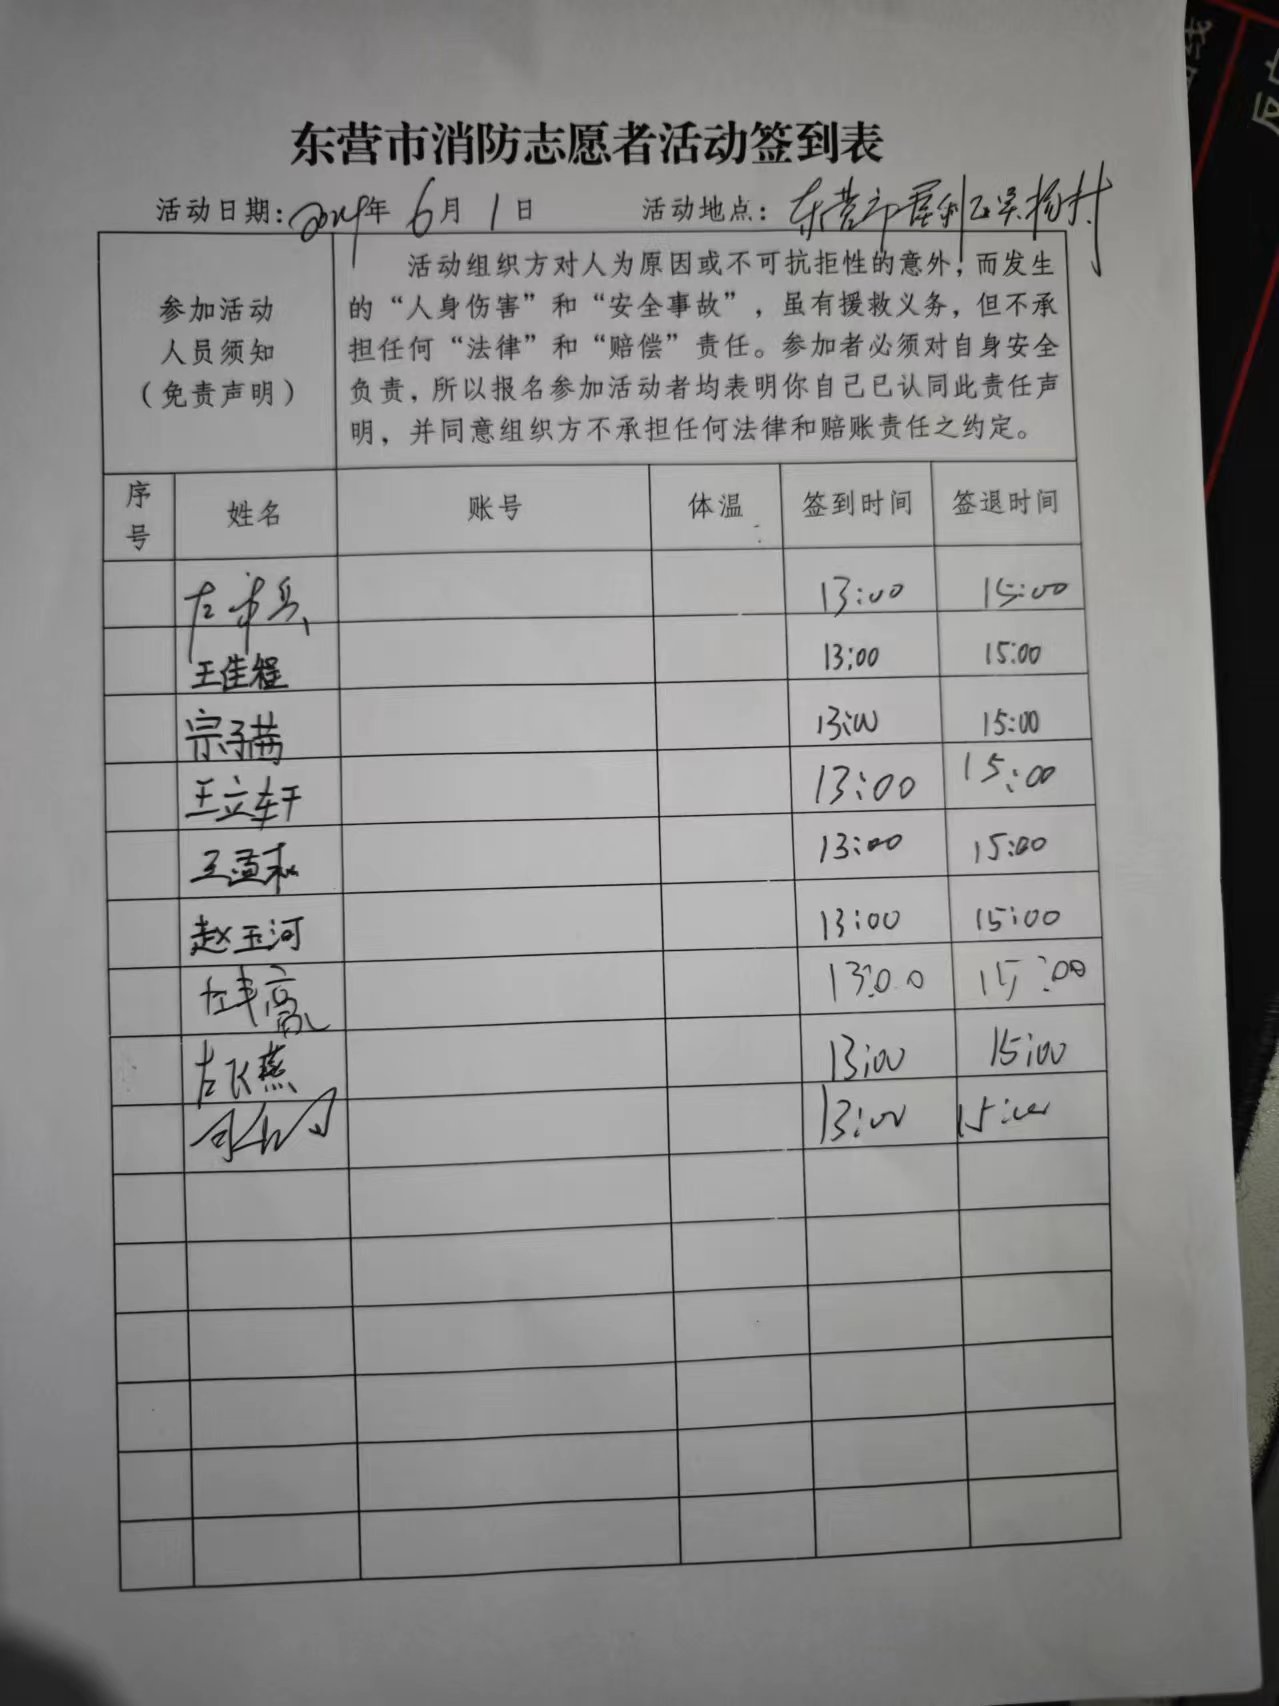 东营市消防志愿者活动签到表
活动日期：2024年 6月 1日 活动地点：东营市垦利区吴杨村
参加活动
人员须知
（免责声明）
活动组织方对人为原因或不可抗拒性的意外，而发生
的“人身伤害”和“安全事故”，虽有援救义务，但不承
担任何“法律”和“赔偿”责任。参加者必须对自身安全
负责，所以报名参加活动者均表明你自己已认同此责任声
明，并同意组织方不承担任何法律和赔账责任之约定。
序号 姓名 账号 体温 签到时间 签退时间
13:00 15:00
王佳程 13:00 15:00
宗子茜 13:00 15:00
王立轩 13:00 15:00
王孟 13:00 15:00
赵玉河 13:00 15:00
左丰 13:00 15:00
左飞燕 13:00 15:00
13:00 15:00